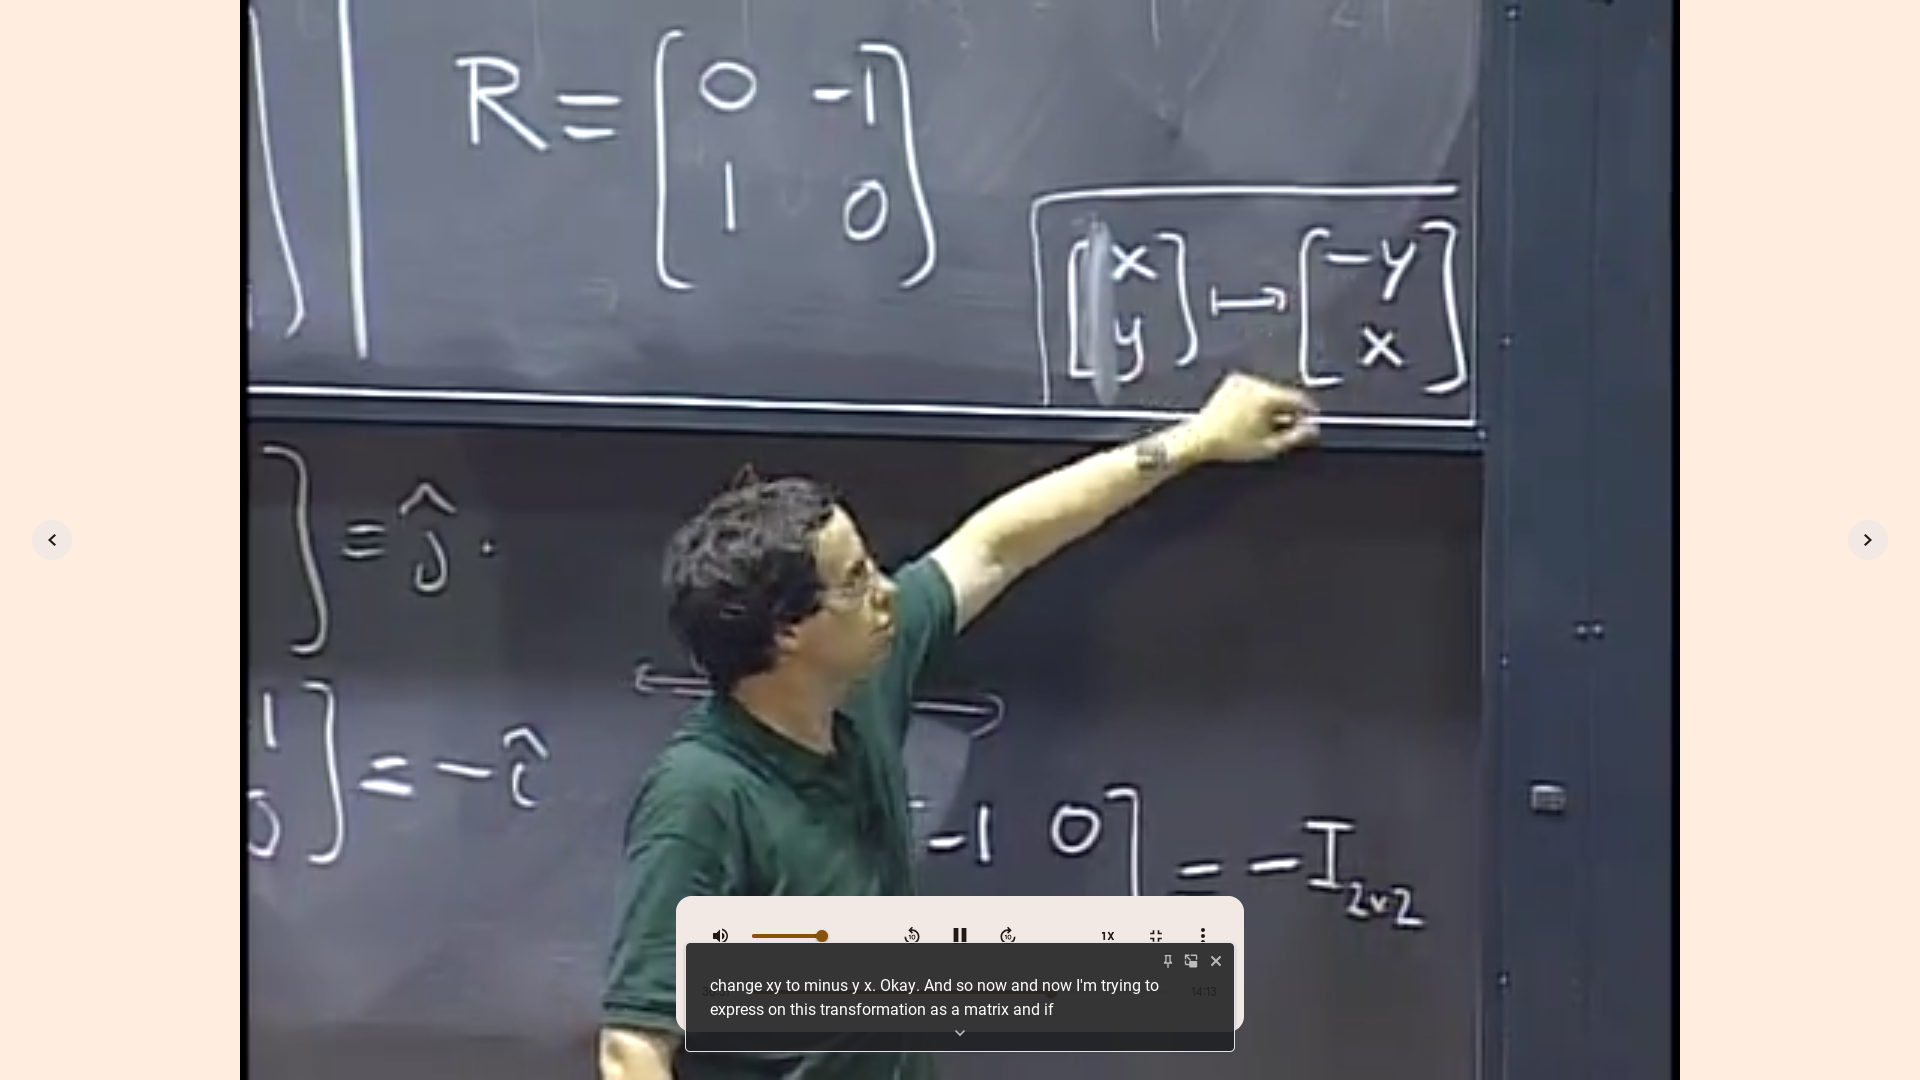 R = [0 -1
1 0]
[x
y] ↦ [-y
x]
] = ĵ.
1
0] = -î
-1 0] = -I₂ₓ₂
10
10
1X
change xy to minus y x. Okay. And so now and now I'm trying to
14:13
express on this transformation as a matrix and if